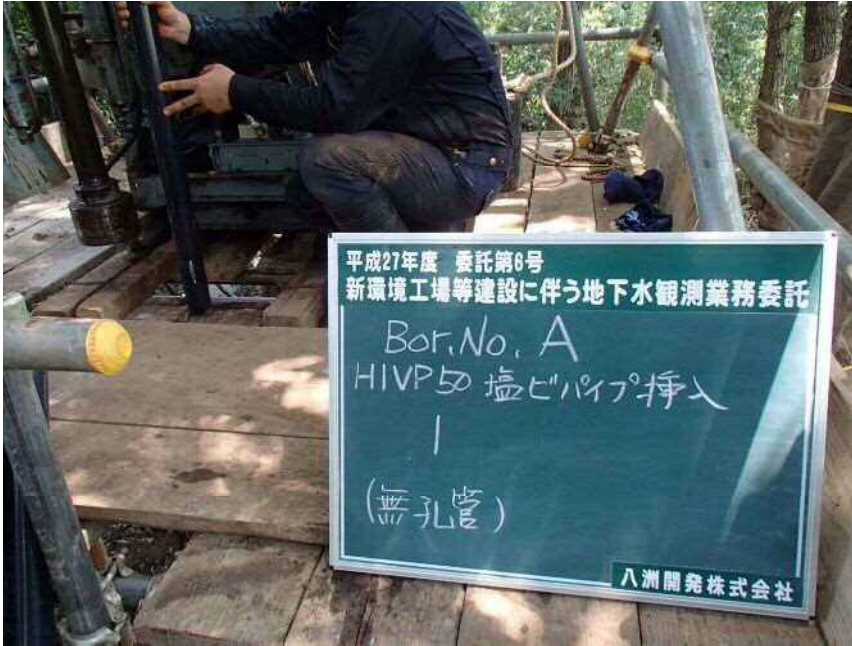 平成27年度 委託第6号
新環境工場等建設に伴う地下水観測業務委託
Bor.No. A
HIVP50 塩ビパイプ挿入
1
(無孔管)
八洲開発株式会社